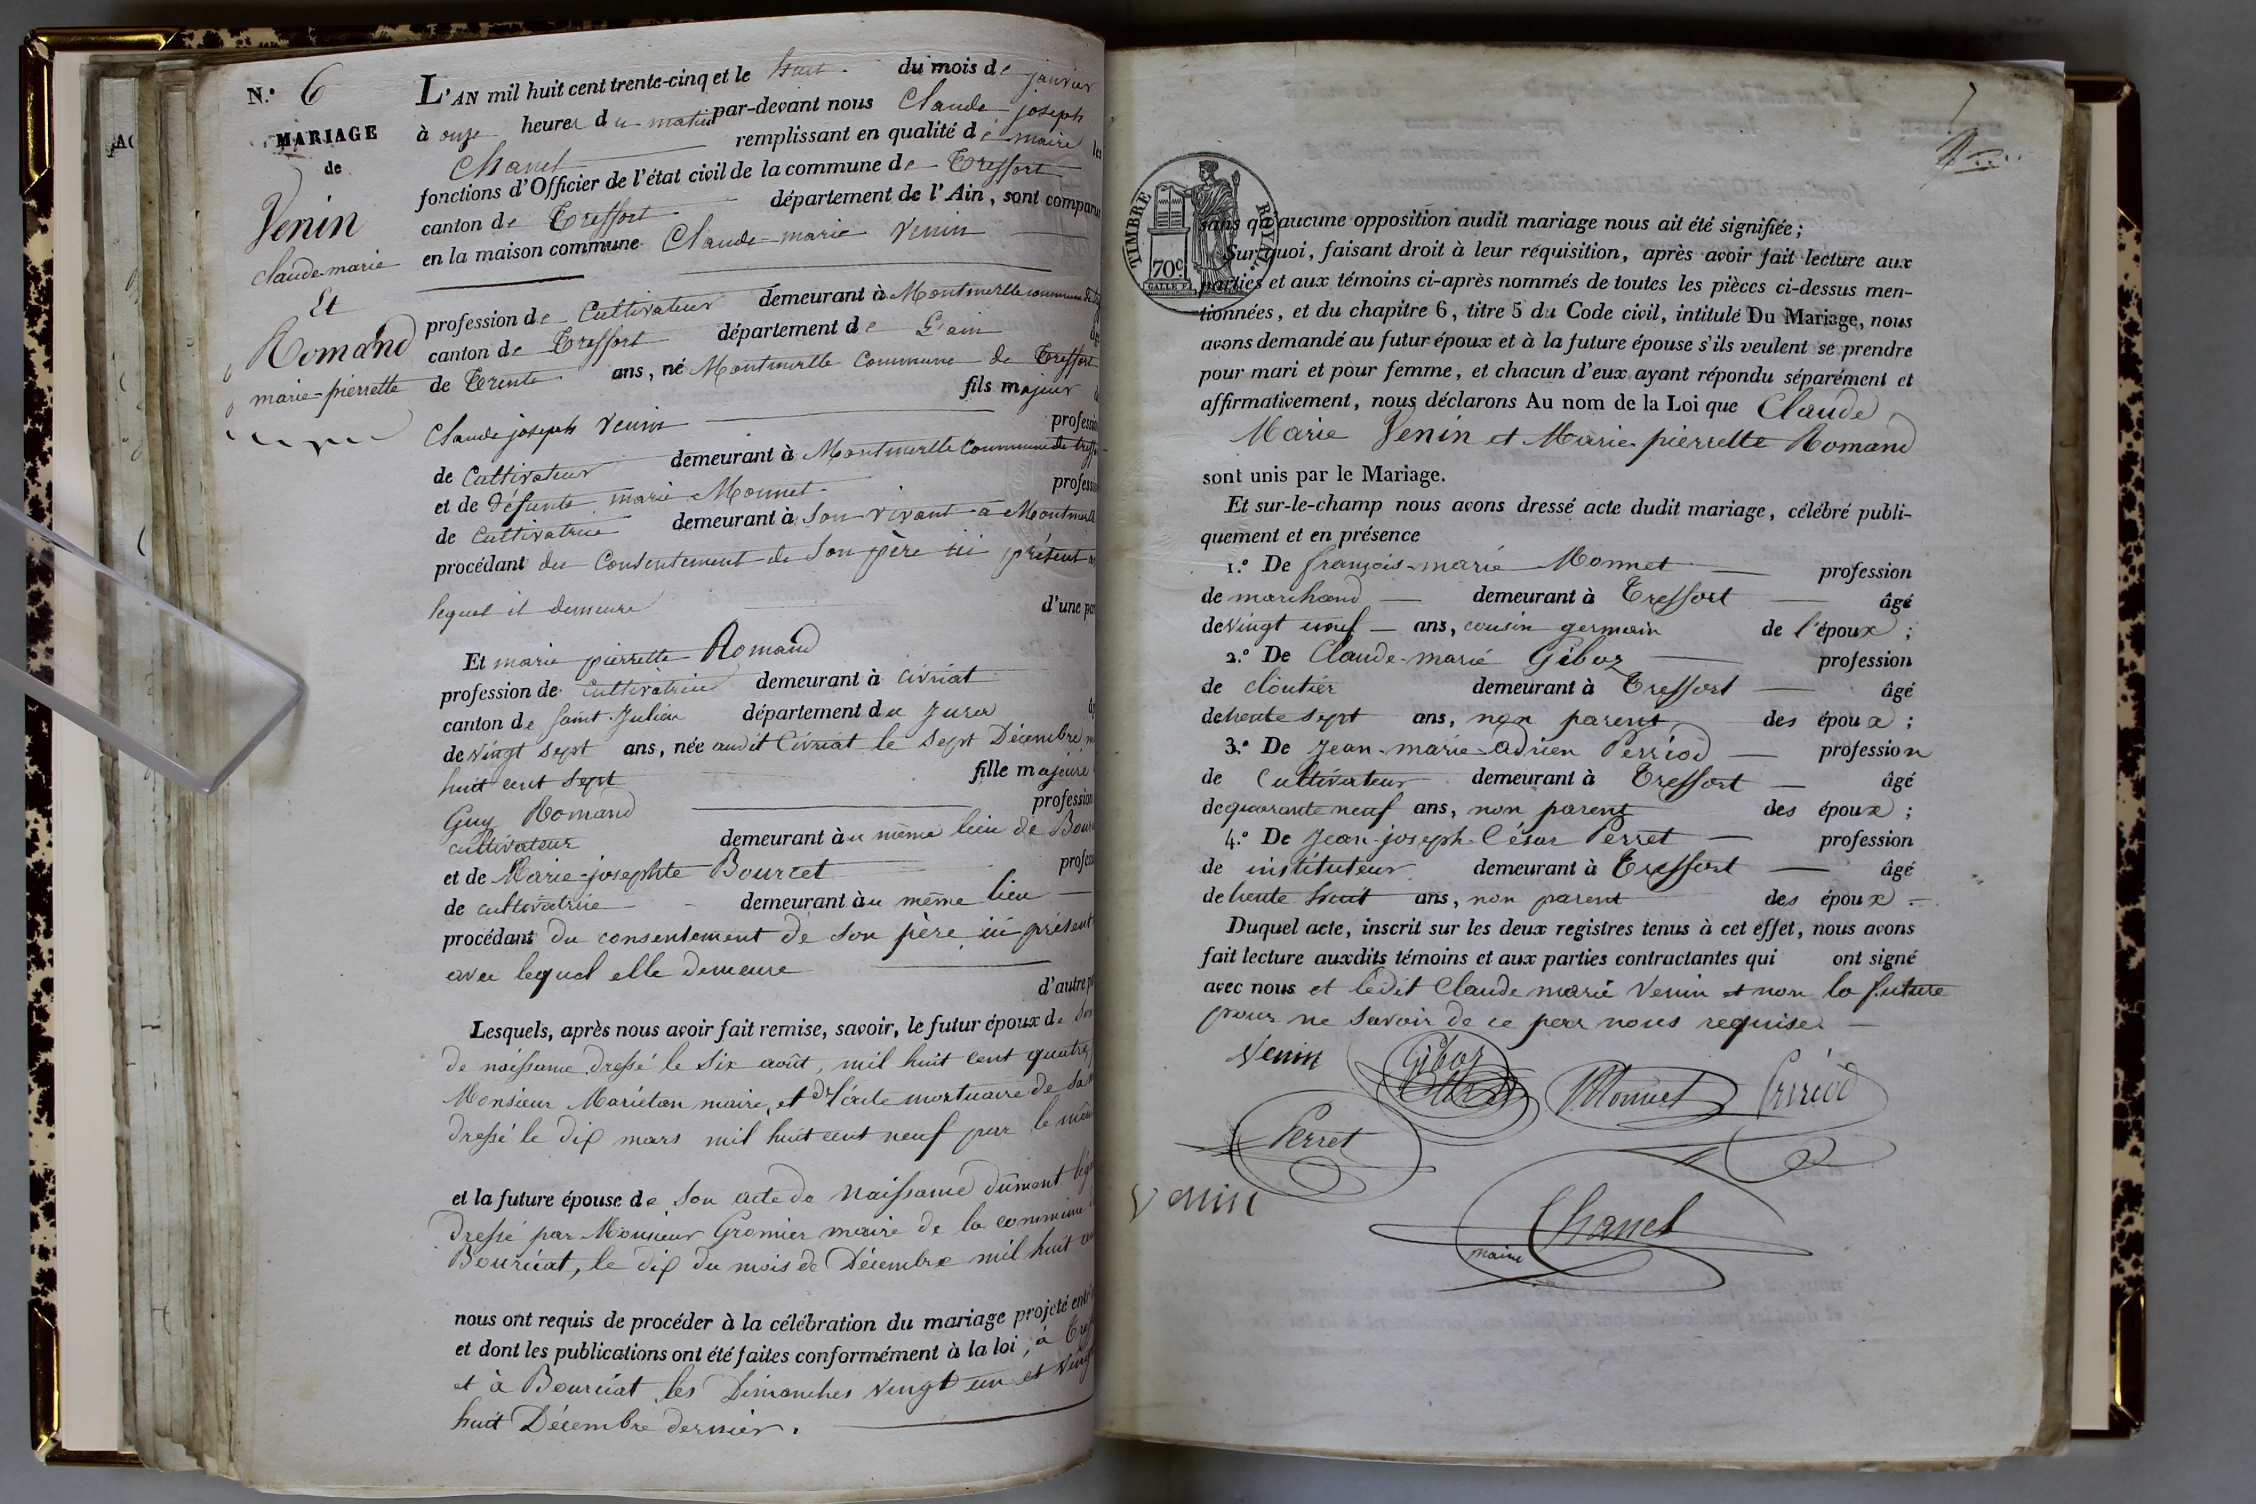 N.º 6
MARIAGE
de
Venin
claude-marie
Et
Romand
marie-pierrette
L'AN mil huit cent trente-cinq et le huit du mois de janvier
à onze heures du matin par-devant nous Claude joseph
Chanel remplissant en qualité de maire les
fonctions d'Officier de l'état civil de la commune de Treffort
canton de Treffort département de l'Ain, sont comparus
en la maison commune Claude-marie Venin
profession de Cultivateur demeurant à Montmerle commune
canton de Treffort département de L'ain
de Trente ans, né Montmerlle Commune de Treffort
fils majeur
Claude joseph Venin profession
de Cultivateur demeurant à Montmerlle Commune de
et de défunte marie Monnet profession
de Cultivatrice demeurant à Son vivant a
procédant du Consentement de Son père ici présent
lequel il demeure d'une
Et marie pierrette Romand
profession de Cultivatrice demeurant à Civriat
canton de Saint-Julien département du Jura
de vingt Sept ans, née audit Civriat le Sept Décembre
huit cent Sept fille majeure
Guy Romand profession
cultivateur demeurant au même lieu de
et de Marie-josephte Bourcet
de cultivatrice demeurant au même lieu
procédant du consentement de Son père ici présent
avec lequel elle demeure d'autre
Lesquels, après nous avoir fait remise, savoir, le futur époux de Son
de naissance dressé le Six août, mil huit cent quatre
Monsieur Mariétan maire, et de l'acte mortuaire de Sa
dressé le dix mars mil huit cent neuf par le même
et la future épouse de Son acte de Naissance dûment
dressé par Monsieur Gromier maire de la commune
Bourciat, le dix du mois de Décembre mil huit
nous ont requis de procéder à la célébration du mariage projeté
et dont les publications ont été faites conformément à la loi, à
et à Bourciat les Dimanches vingt un et vingt
huit Décembre dernier.
7
TIMBRE ROYAL
70c
sans qu'aucune opposition audit mariage nous ait été signifiée;
Sur quoi, faisant droit à leur réquisition, après avoir fait lecture aux
parties et aux témoins ci-après nommés de toutes les pièces ci-dessus men-
tionnées, et du chapitre 6, titre 5 du Code civil, intitulé Du Mariage, nous
avons demandé au futur époux et à la future épouse s'ils veulent se prendre
pour mari et pour femme, et chacun d'eux ayant répondu séparément et
affirmativement, nous déclarons Au nom de la Loi que Claude
Marie Venin et Marie-pierrette Romand
sont unis par le Mariage.
Et sur-le-champ nous avons dressé acte dudit mariage, célébré publi-
quement et en présence
1.º De françois-marie Monnet profession
de marchand demeurant à Treffort âgé
de vingt neuf ans, cousin germain de l'époux;
2.º De Claude-marie Giboz profession
de cloutier demeurant à Treffort âgé
de trente Sept ans, non parent des époux;
3.º De Jean-marie-Adrien Perriod profession
de Cultivateur demeurant à Treffort âgé
de quarante neuf ans, non parent des époux;
4.º De Jean-joseph-César Perret profession
de instituteur demeurant à Treffort âgé
de trente huit ans, non parent des époux.
Duquel acte, inscrit sur les deux registres tenus à cet effet, nous avons
fait lecture auxdits témoins et aux parties contractantes qui ont signé
avec nous et ledit Claude marie Venin et non la future
pour ne Savoir de ce par nous requise.
Venin Giboz Monnet Perriod
Perret
Venin
Chanel
maire